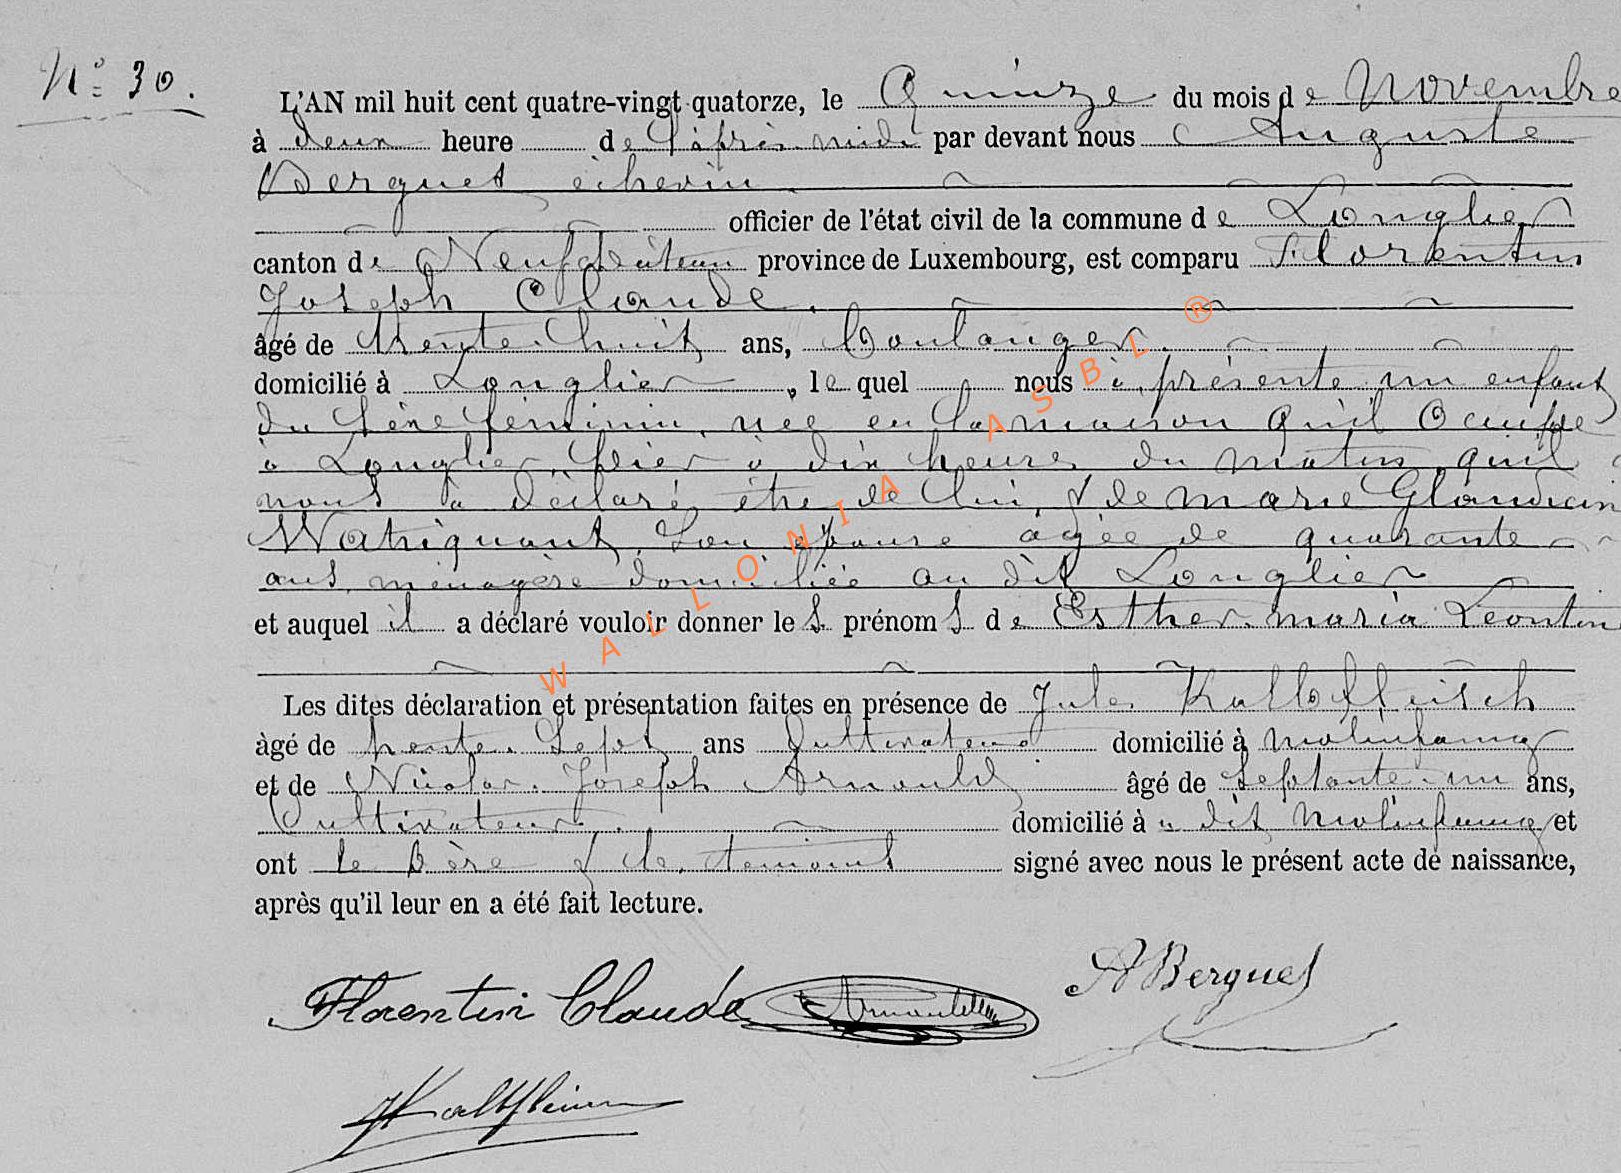 N° 30.
L'AN mil huit cent quatre-vingt quatorze, le Quinze du mois de Novembre
à deux heure de l'après-midi par devant nous Auguste
Berquet échevin
officier de l'état civil de la commune de Longlier
canton de Neufchâteau province de Luxembourg, est comparu Florentin
Joseph Claude.
âgé de trente-huit ans, boulanger.
domicilié à Longlier, lequel nous à présenté un enfant
du sexe féminin, née en la maison qu'il occupe
à Longlier, hier à dix heures du matin qu'il
nous à déclaré être de lui & de marie
Watriquant son épouse âgée de quarante
ans, ménagère domiciliée au dit Longlier
et auquel il a déclaré vouloir donner les prénoms de Esther maria Leontin
Les dites déclaration et présentation faites en présence de Jules
âgé de trente-sept ans Cultivateur domicilié à molinfaing
et de Nicolas Joseph Arnould âgé de septante-un ans,
Cultivateur. domicilié à u dit molinfaing et
ont le Père & les témoins signé avec nous le présent acte de naissance,
après qu'il leur en a été fait lecture.
Florentin Claude Arnould A Berquet
WALLONIA ASBL ®